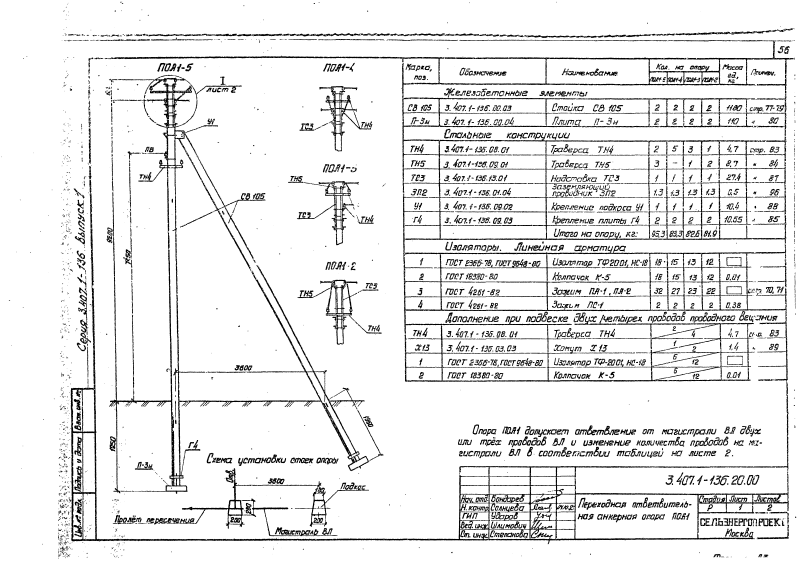 56
Серия 3.407.1-136 Выпуск 1
ПОА1-5
I
лист 2
У1
ПВ
ТН4
СВ 105
3600
Г4
П-3и
Схема установки стоек опоры
3600
Подкос
200
200
Пролёт пересечения
Магистраль ВЛ
ПОА1-4
ТС3
ТН4
ПОА1-3
ТН5
ТС3
ТН4
ПОА1-2
ТН5
ТС3
ТН4
Марка, поз. Обозначение Наименование Кол. на опору Масса ед., кг Примеч.
ПОА1-5 ПОА1-4 ПОА1-3 ПОА1-2
Железобетонные элементы
СВ 105 3.407.1-136.00.03 Стойка СВ 105 2 2 2 2 1180 стр. 77-79
П-3и 3.407.1-136.00.04 Плита П-3и 2 2 2 2 110 " 80
Стальные конструкции
ТН4 3.407.1-136.08.01 Траверса ТН4 2 5 3 1 4.7 стр. 83
ТН5 3.407.1-136.09.01 Траверса ТН5 3 - 1 2 8.7 " 84
ТС3 3.407.1-136.13.01 Надставка ТС3 1 1 1 1 27.4 " 87
ЗП2 3.407.1-136.01.04 Заземляющий проводник ЗП2 1.3 1.3 1.3 1.3 0.5 " 96
У1 3.407.1-136.09.02 Крепление подкоса У1 1 1 1 1 10.4 " 88
Г4 3.407.1-136.09.03 Крепление плиты Г4 2 2 2 2 10.55 " 85
Итого на опору, кг: 95.3 83.3 82.6 81.9
Изоляторы. Линейная арматура
1 ГОСТ 2366-78, ГОСТ 9648-80 Изолятор ТФ2001, НС-18 18 15 13 12
2 ГОСТ 18380-80 Колпачок К-5 18 15 13 12 0.01
3 ГОСТ 4261-82 Зажим ПА-1, ПА-2 32 27 23 22 стр. 70, 71
4 ГОСТ 4261-82 Зажим ПС-1 2 2 2 2 0.38
Дополнение при подвеске двух/четырех проводов проводного вещания
ТН4 3.407.1-136.08.01 Траверса ТН4 2 4 4.7 стр. 83
Х13 3.407.1-136.03.03 Хомут Х13 1 2 1.4 " 89
1 ГОСТ 2366-78, ГОСТ 9648-80 Изолятор ТФ-2001, НС-18 6 12
2 ГОСТ 18380-80 Колпачок К-5 6 12 0.01
Опора ПОА1 допускает ответвление от магистрали ВЛ двух
или трёх проводов ВЛ и изменение количества проводов на ма-
гистрали ВЛ в соответствии таблицей на листе 2.
3.407.1-136.20.00
Нач. отд. Бондарев
Н. контр. Солнцева
ГИП Ударов
Вед. инж. Улимович
Ст. инж. Степанова
Переходная ответвитель-
ная анкерная опора ПОА1
Стадия Лист Листов
Р 1 2
СЕЛЬЭНЕРГОПРОЕКТ
Москва
Инв. № подл. Подпись и дата Взам. инв. №